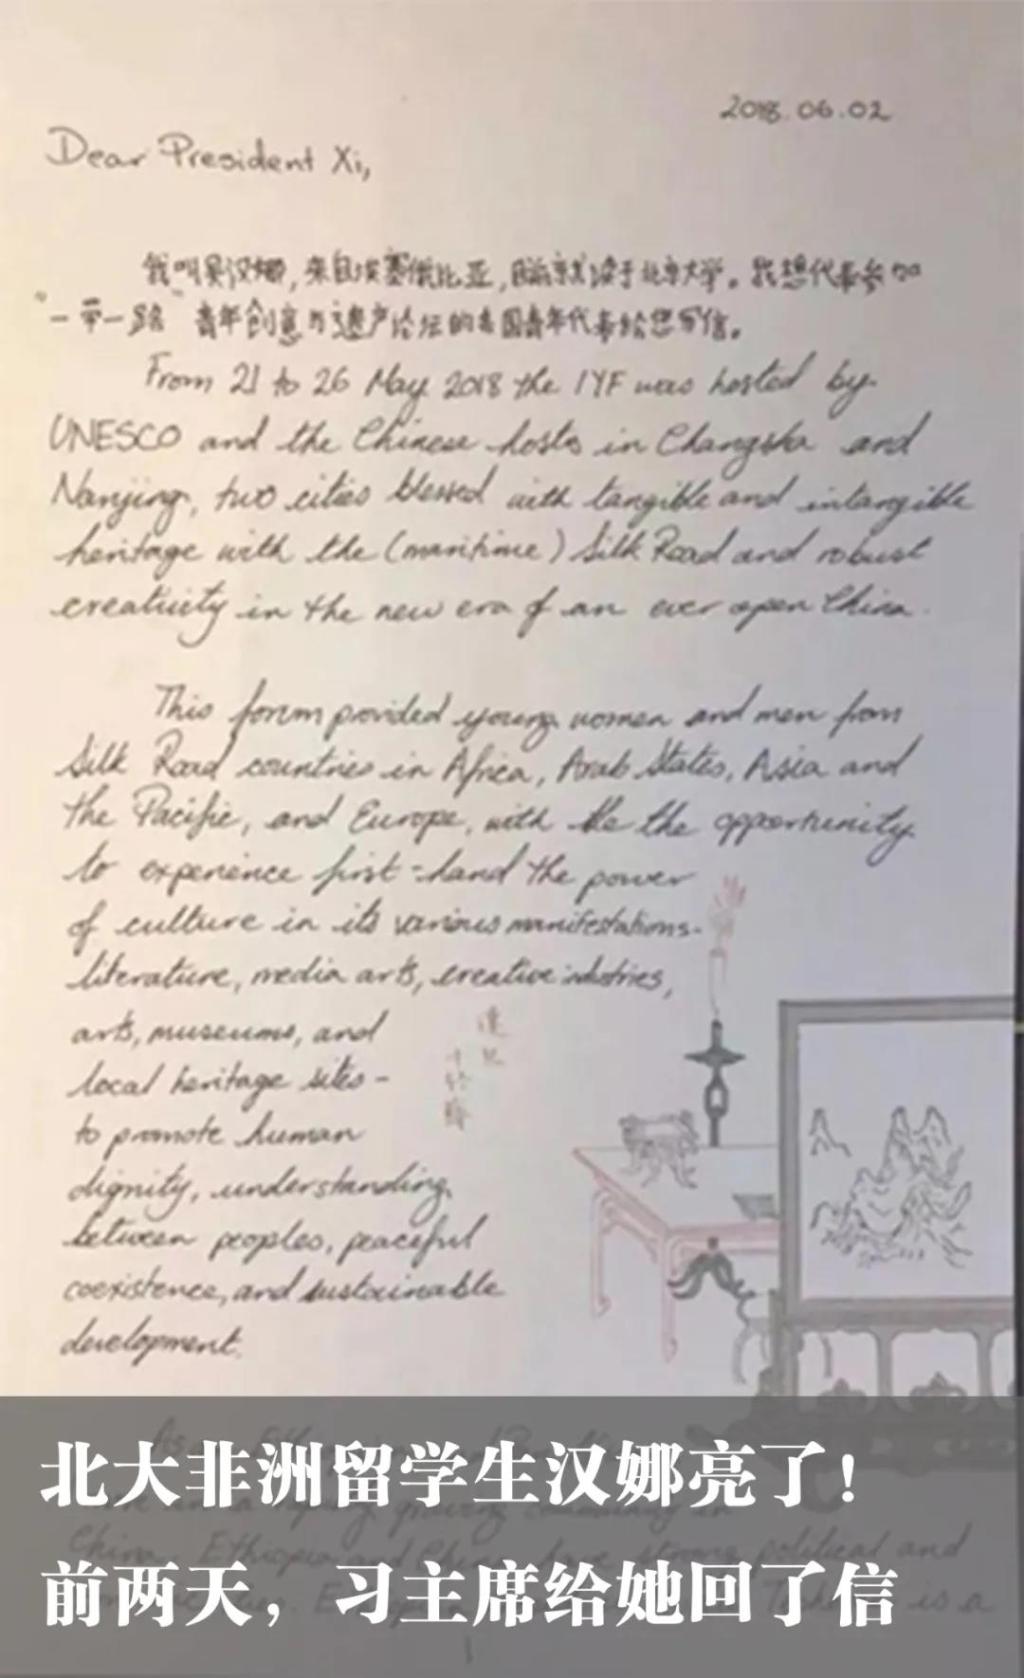 2018.06.02
Dear President Xi,
我叫吴汉娜,来自埃塞俄比亚,目前就读于北京大学。我想代表参加
“一带一路”青年创意与遗产论坛的各国青年代表给您写信。
From 21 to 26 May 2018 the IYF was hosted by
UNESCO and the Chinese hosts in Changsha and
Nanjing, two cities blessed with tangible and intangible
heritage with the (maritime) Silk Road and robust
creativity in the new era of an ever open China.
This forum provided young women and men from
Silk Road countries in Africa, Arab States, Asia and
the Pacific, and Europe, with the the opportunity
to experience first-hand the power
of culture in its various manifestations-
literature, media arts, creative industries,
arts, museums, and
local heritage sites-
to promote human
dignity, understanding
between peoples, peaceful
coexistence, and sustainable
development.
北大非洲留学生汉娜亮了!
growing community in
China. Ethiopia and China have strong political and
前两天，习主席给她回了信
is a
1